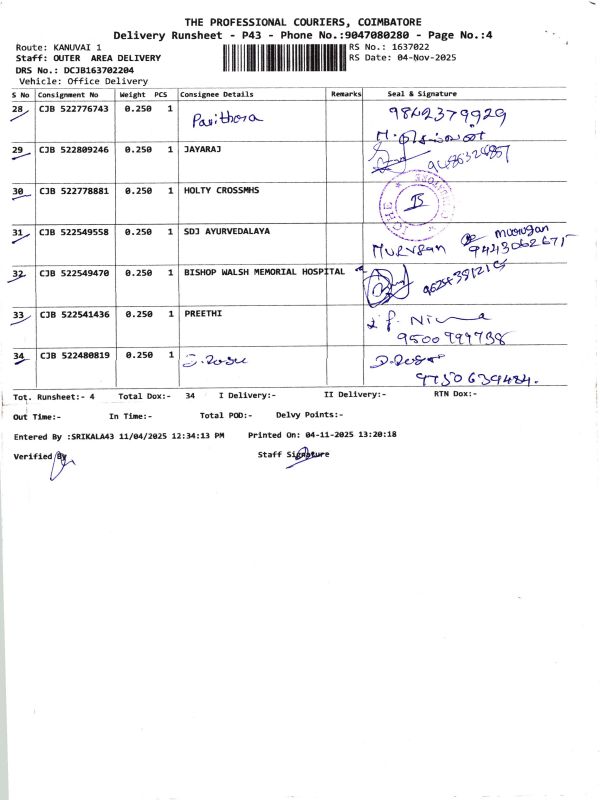 THE PROFESSIONAL COURIERS, COIMBATORE
Delivery Runsheet - P43 - Phone No.:9047080280 - Page No.:4
Route: KANUVAI 1
RS No.: 1637022
Staff: OUTER AREA DELIVERY
RS Date: 04-Nov-2025
DRS No.: DCJB163702204
Vehicle: Office Delivery
S No Consignment No Weight PCS Consignee Details Remarks Seal & Signature
28 CJB 522776743 0.250 1 Pavithora 9842379929
29 CJB 522809246 0.250 1 JAYARAJ
30 CJB 522778881 0.250 1 HOLTY CROSSMHS
31 CJB 522549558 0.250 1 SDJ AYURVEDALAYA MURUGAN murugan
9443062675
32 CJB 522549470 0.250 1 BISHOP WALSH MEMORIAL HOSPITAL
33 CJB 522541436 0.250 1 PREETHI
9500999738
34 CJB 522480819 0.250 1
9750639484.
Tot. Runsheet:- 4 Total Dox:- 34 I Delivery:- II Delivery:- RTN Dox:-
Out Time:- In Time:- Total POD:- Delvy Points:-
Entered By :SRIKALA43 11/04/2025 12:34:13 PM Printed On: 04-11-2025 13:20:18
Verified By Staff Signature